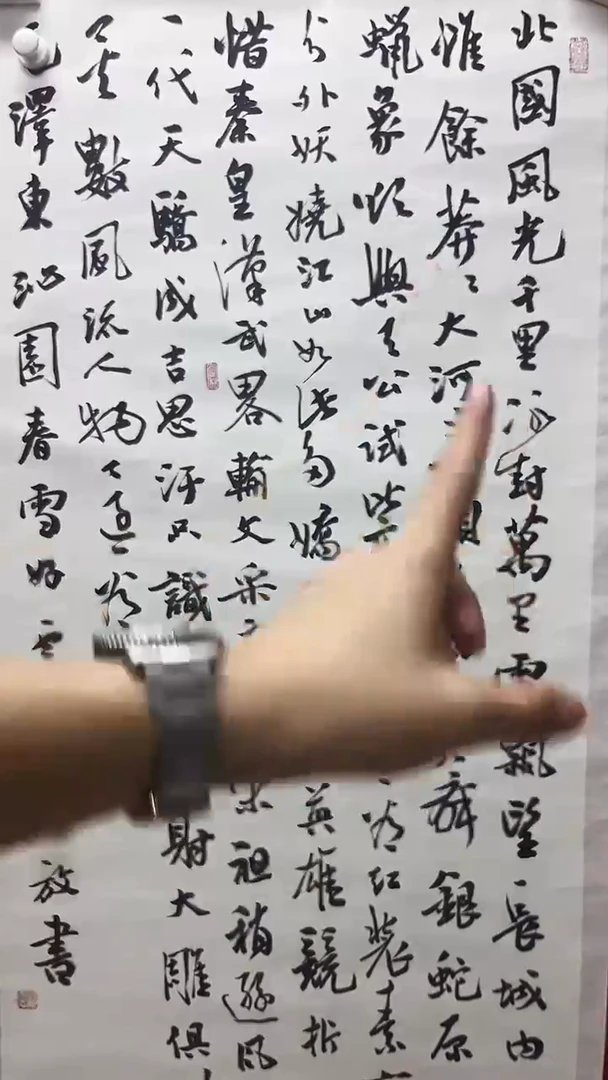 北國風光千里冰封萬里雪飄望長城內
惟餘莽〻大河 舞銀蛇原
蠟象欲與天公試比 看紅裝素
分外妖嬈江山如此多嬌 英雄競折
惜秦皇漢武畧輸文采 宋祖稍遜風
一代天驕成吉思汗只識 射大雕俱
〻矣數風流人物〻還看
毛澤東沁園春雪 放書